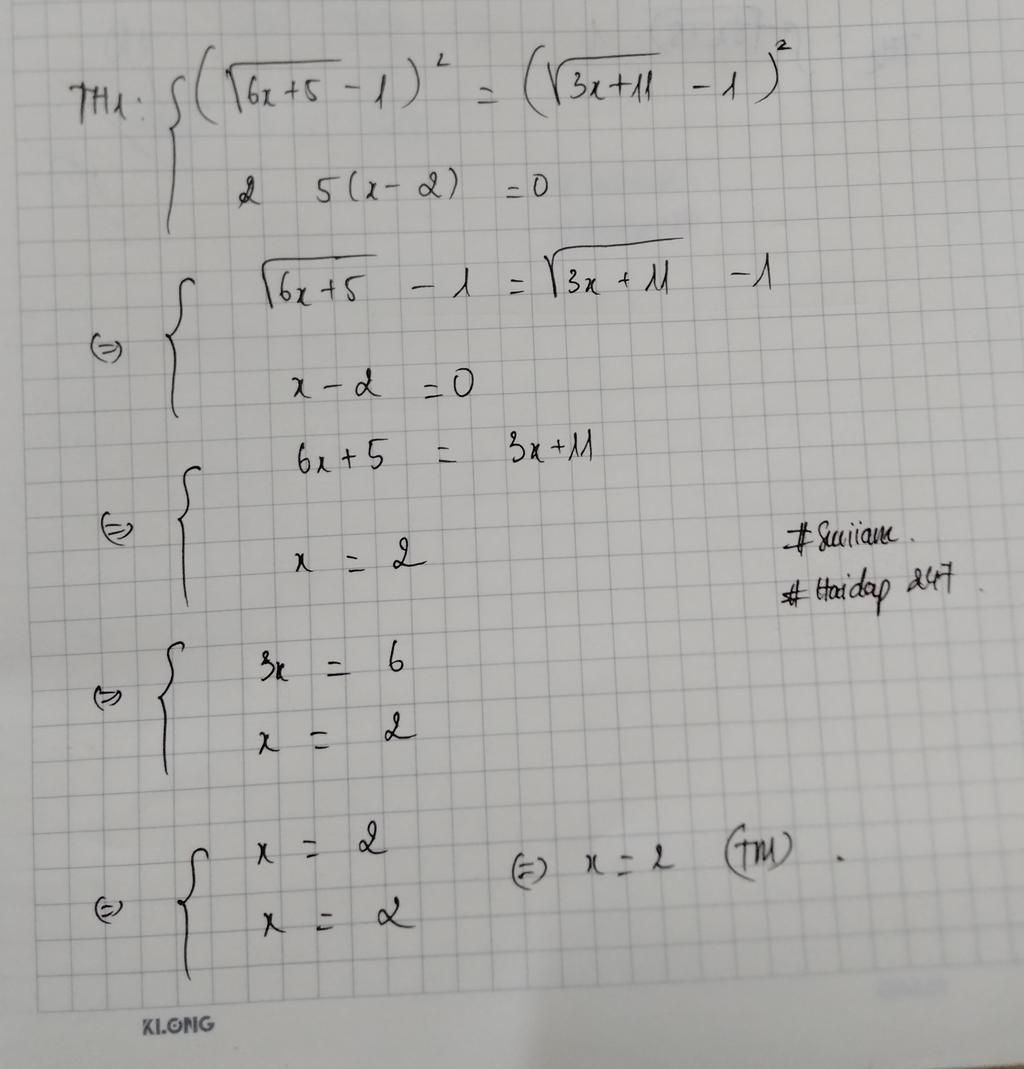 TH1: { (√(6x+5) - 1)² = (√(3x+11) - 1)²
2 5(x - 2) = 0
⇔ { √(6x+5) - 1 = √(3x+11) - 1
x - 2 = 0
⇔ { 6x + 5 = 3x + 11
x = 2
# Haidap 247
⇔ { 3x = 6
x = 2
⇔ { x = 2 ⇔ x = 2 (TM).
x = 2
KLONG